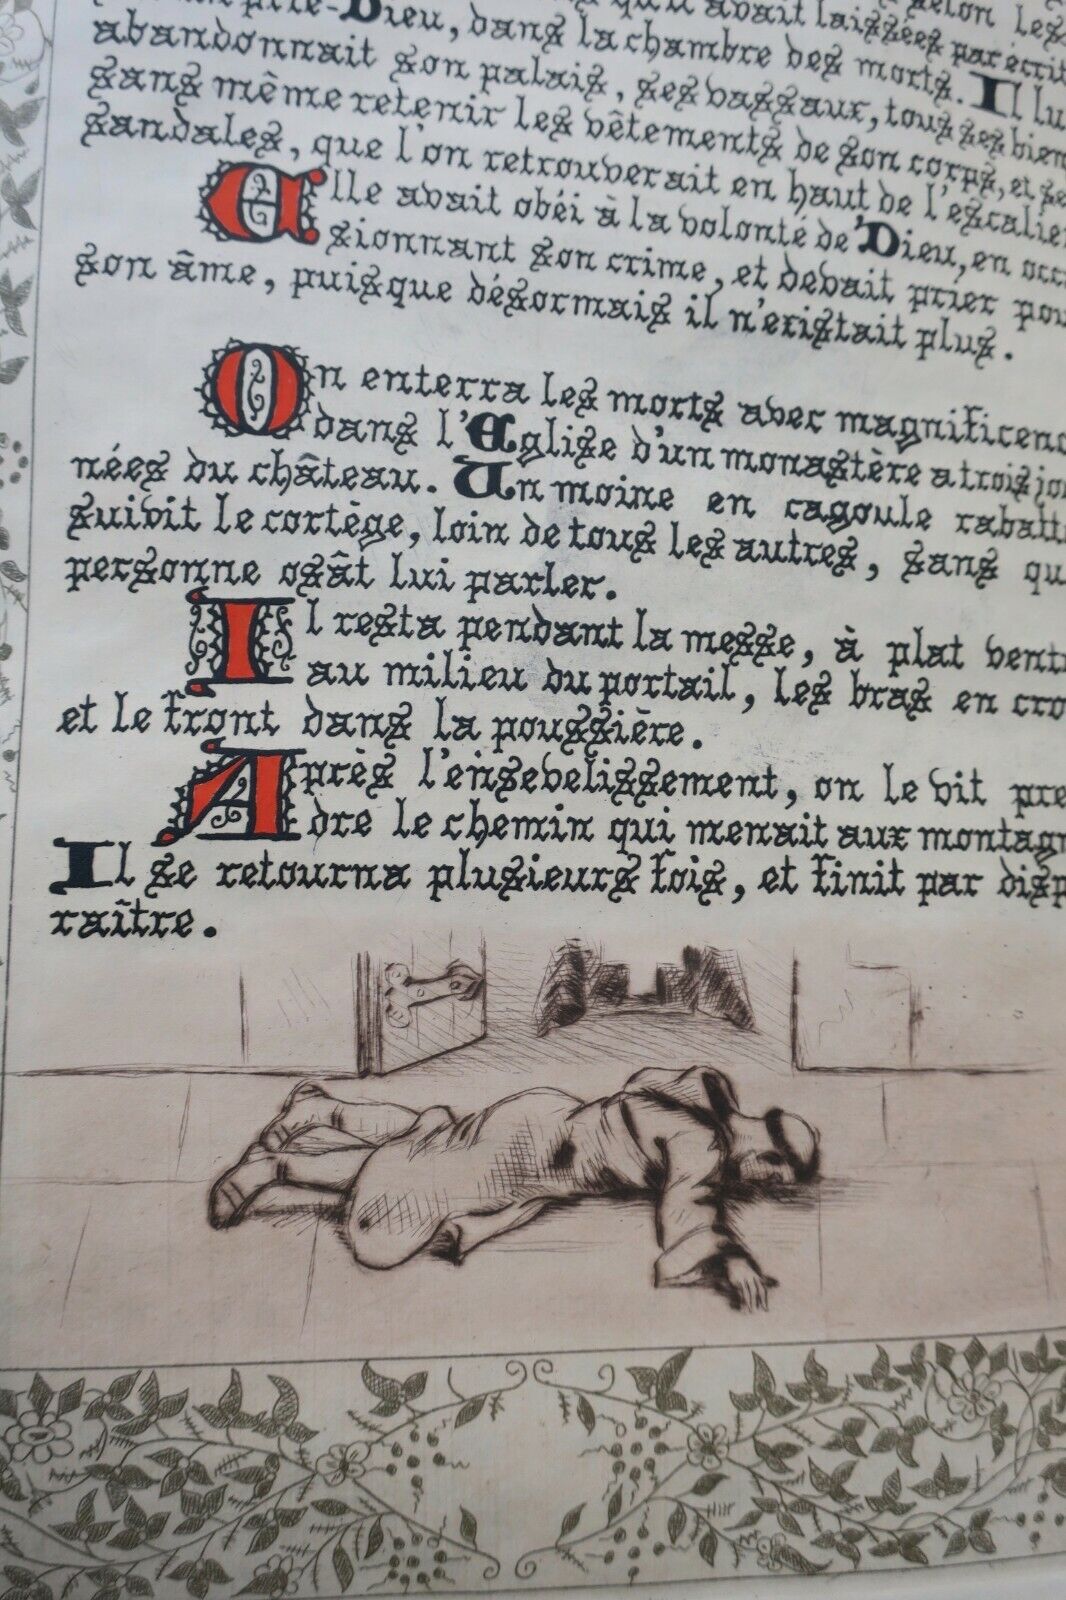 prie-Dieu, dans la chambre des morts. Il lu
qu'il avait laissées par écrit
selon les
abandonnait son palais, ses vassaux, tous ses bien
sans même retenir les vêtements de son corps, et se
sandales, que l'on retrouverait en haut de l'escalier
Elle avait obéi à la volonté de Dieu, en occa
sionnant son crime, et devait prier pou
son âme, puisque désormais il n'existait plus.
On enterra les morts avec magnificenc
dans l'Eglise d'un monastère a trois jou
nées du château. Un moine en cagoule rabatt
suivit le cortège, loin de tous les autres, sans qu
personne osât lui parler.
Il resta pendant la messe, à plat ventr
au milieu du portail, les bras en cro
et le front dans la poussière.
Après l'ensevelissement, on le vit pre
dre le chemin qui menait aux montagn
Il se retourna plusieurs fois, et finit par disp
raître.